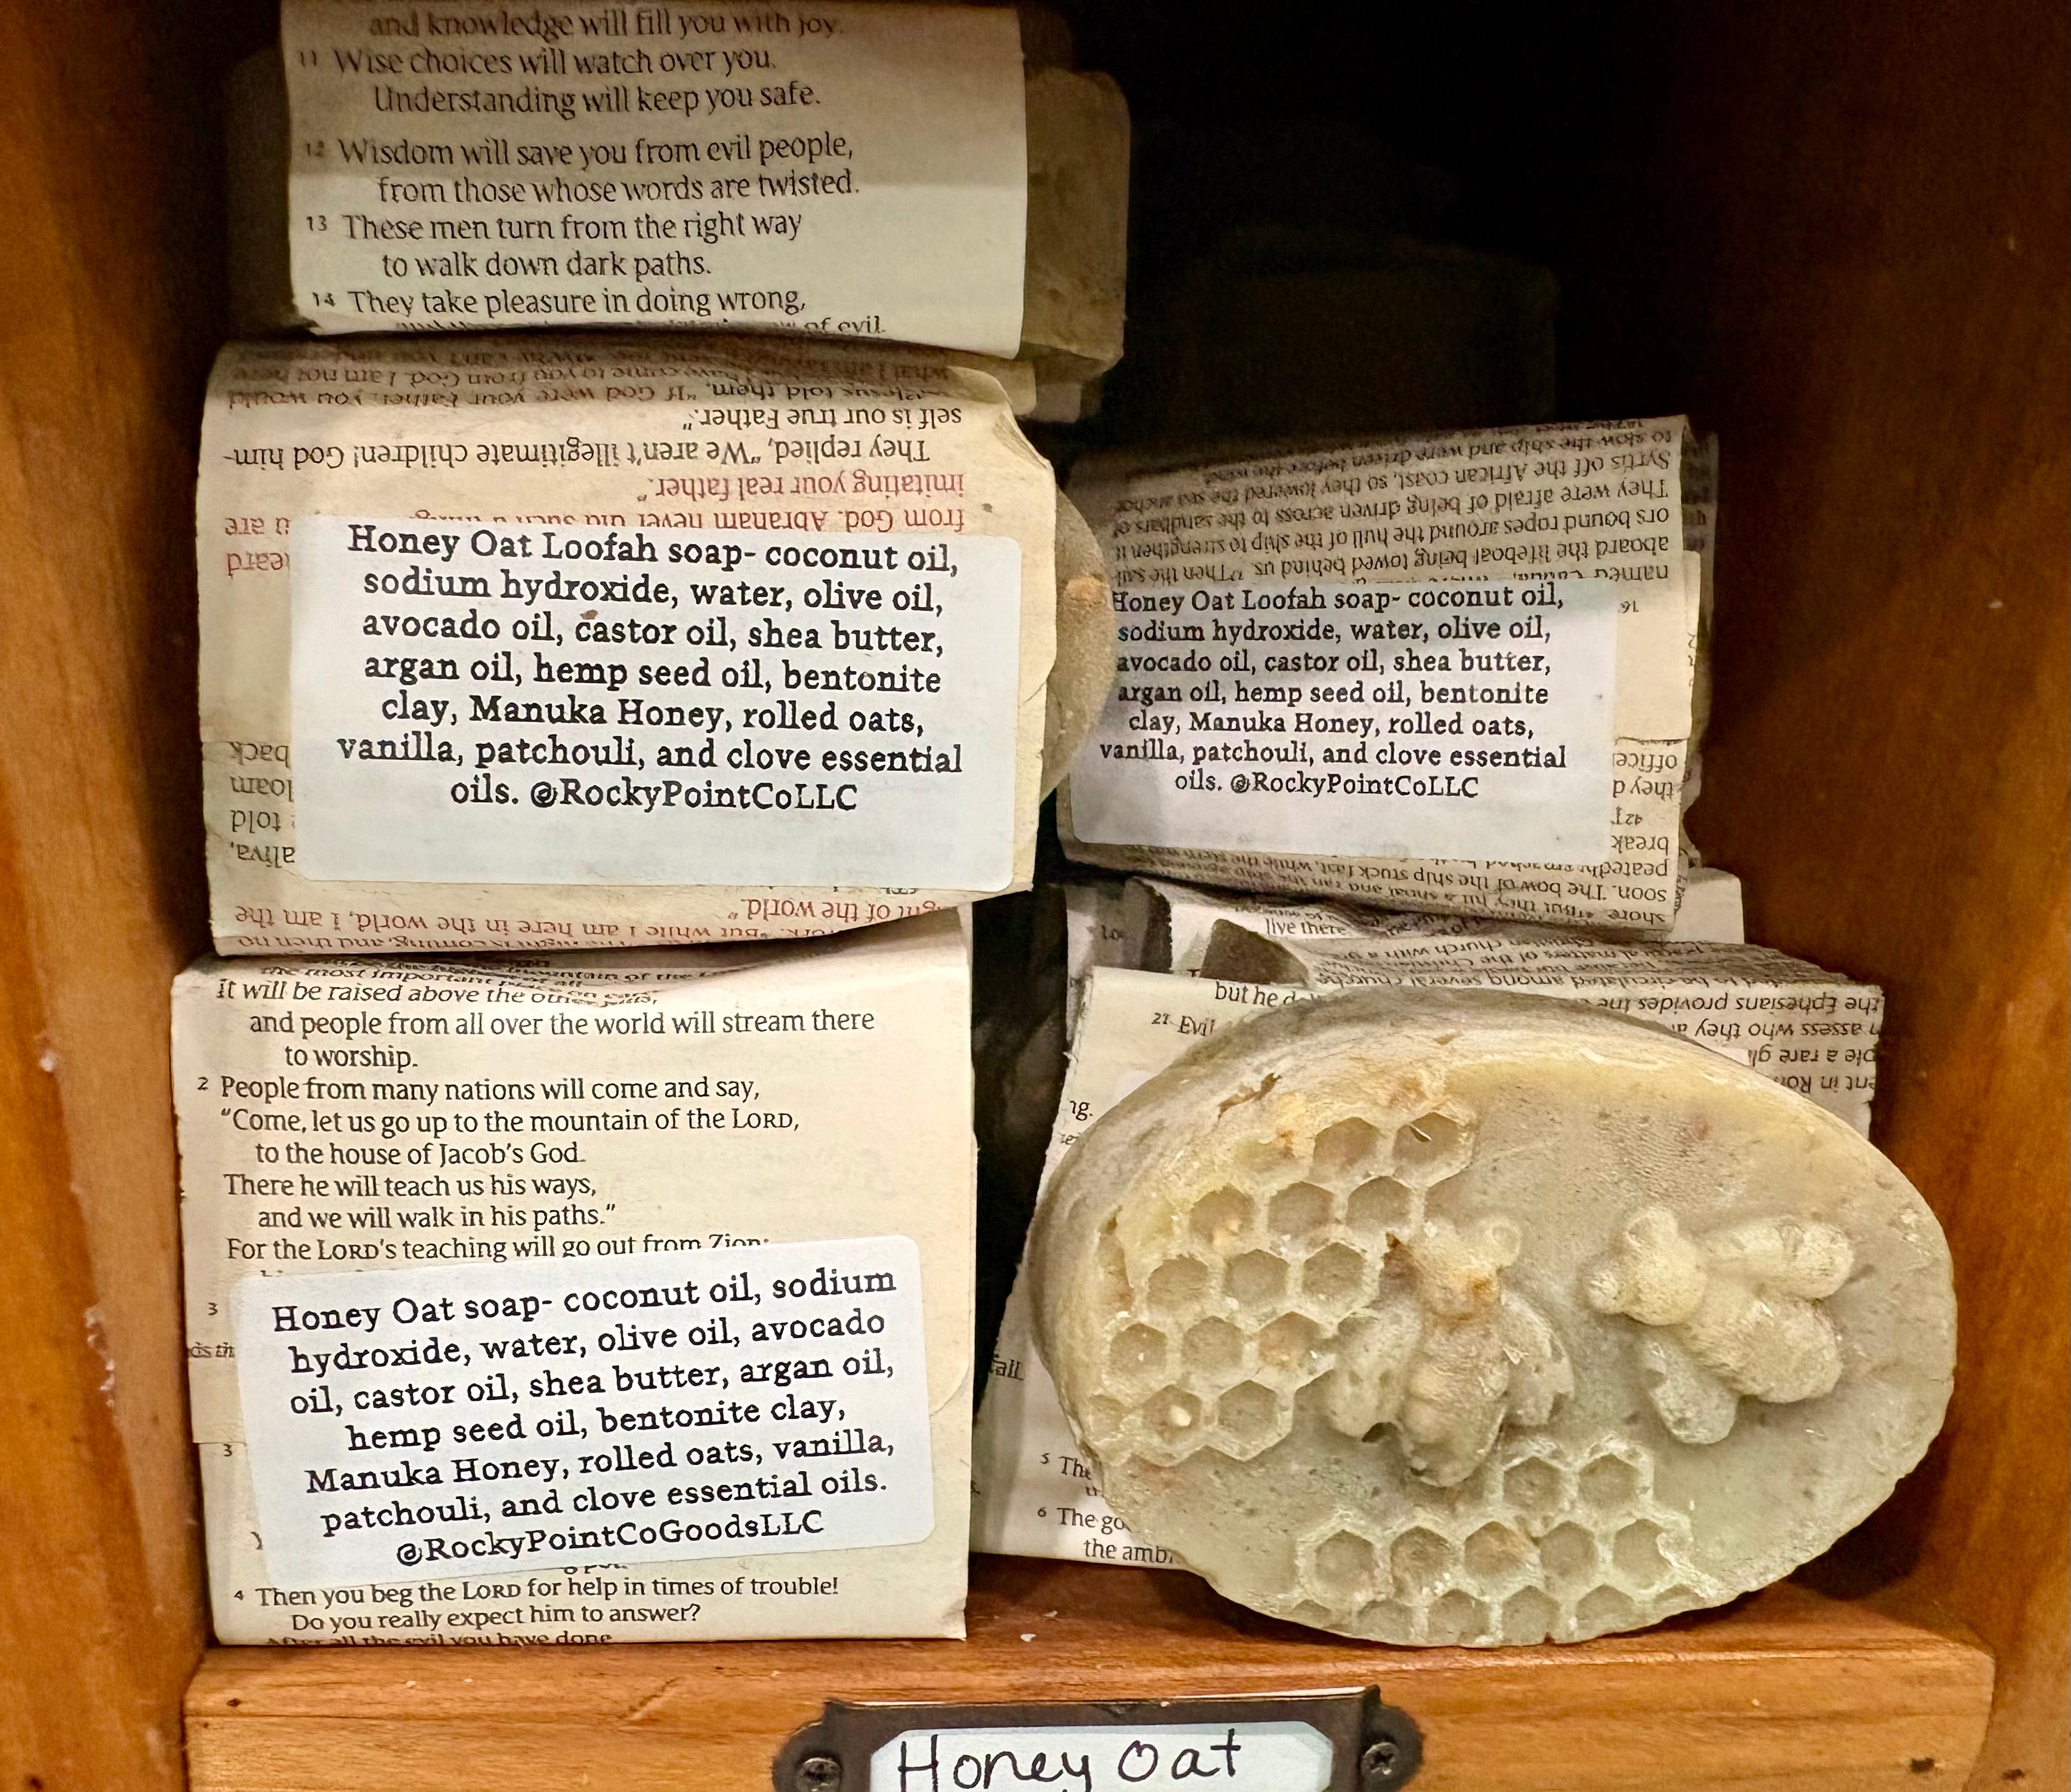 and knowledge will fill you with joy.
11 Wise choices will watch over you.
Understanding will keep you safe.
12 Wisdom will save you from evil people,
from those whose words are twisted.
13 These men turn from the right way
to walk down dark paths.
14 They take pleasure in doing wrong,
of evil.
what I am
have come to you from God. I am not here
Jesus told them, "If God were your Father, you would
self is our true Father."
They replied, "We aren't illegitimate children! God him-
imitating your real father."
from God. Abraham never did such a thing.
u are
heard
Honey Oat Loofah soap- coconut oil,
sodium hydroxide, water, olive oil,
avocado oil, castor oil, shea butter,
argan oil, hemp seed oil, bentonite
clay, Manuka Honey, rolled oats,
vanilla, patchouli, and clove essential
oils. @RockyPointCoLLC
back
loam
told
saliva,
light of the world."
But while I am here in the world, I am the
coming, and then no
to slow the ship and were driven before the wind.
Syrtis off the African coast, so they lowered the sea anchor
They were afraid of being driven across to the sandbars of
ors bound ropes around the hull of the ship to strengthen it.
aboard the lifeboat being towed behind us. 17Then the sail-
named Cauda,
16
Honey Oat Loofah soap- coconut oil,
sodium hydroxide, water, olive oil,
avocado oil, castor oil, shea butter,
argan oil, hemp seed oil, bentonite
clay, Manuka Honey, rolled oats,
vanilla, patchouli, and clove essential
oils. @RockyPointCoLLC
officer
they d
42
break
peatedly smashed
while the stern was
soon. The bow of the ship stuck fast,
shore. 41But they hit a shoal and ran the ship
the most important place on earth.
It will be raised above the other hills,
and people from all over the world will stream there
to worship.
2 People from many nations will come and say,
"Come, let us go up to the mountain of the LORD,
to the house of Jacob's God.
There he will teach us his ways,
and we will walk in his paths."
For the LORD's teaching will go out from Zion;
3
3
Honey Oat soap- coconut oil, sodium
hydroxide, water, olive oil, avocado
oil, castor oil, shea butter, argan oil,
hemp seed oil, bentonite clay,
Manuka Honey, rolled oats, vanilla,
patchouli, and clove essential oils.
@RockyPointCoGoodsLLC
4 Then you beg the LORD for help in times of trouble!
Do you really expect him to answer?
After all the evil you have done
live there
but he d
21 Evil
Christian church with a
matters of the Christian
to be circulated among several churches
the Ephesians provides the
assess who they a
ple a rare gl
ent in Rom
fall.
5 The
6 The go
the amb
Honey Oat